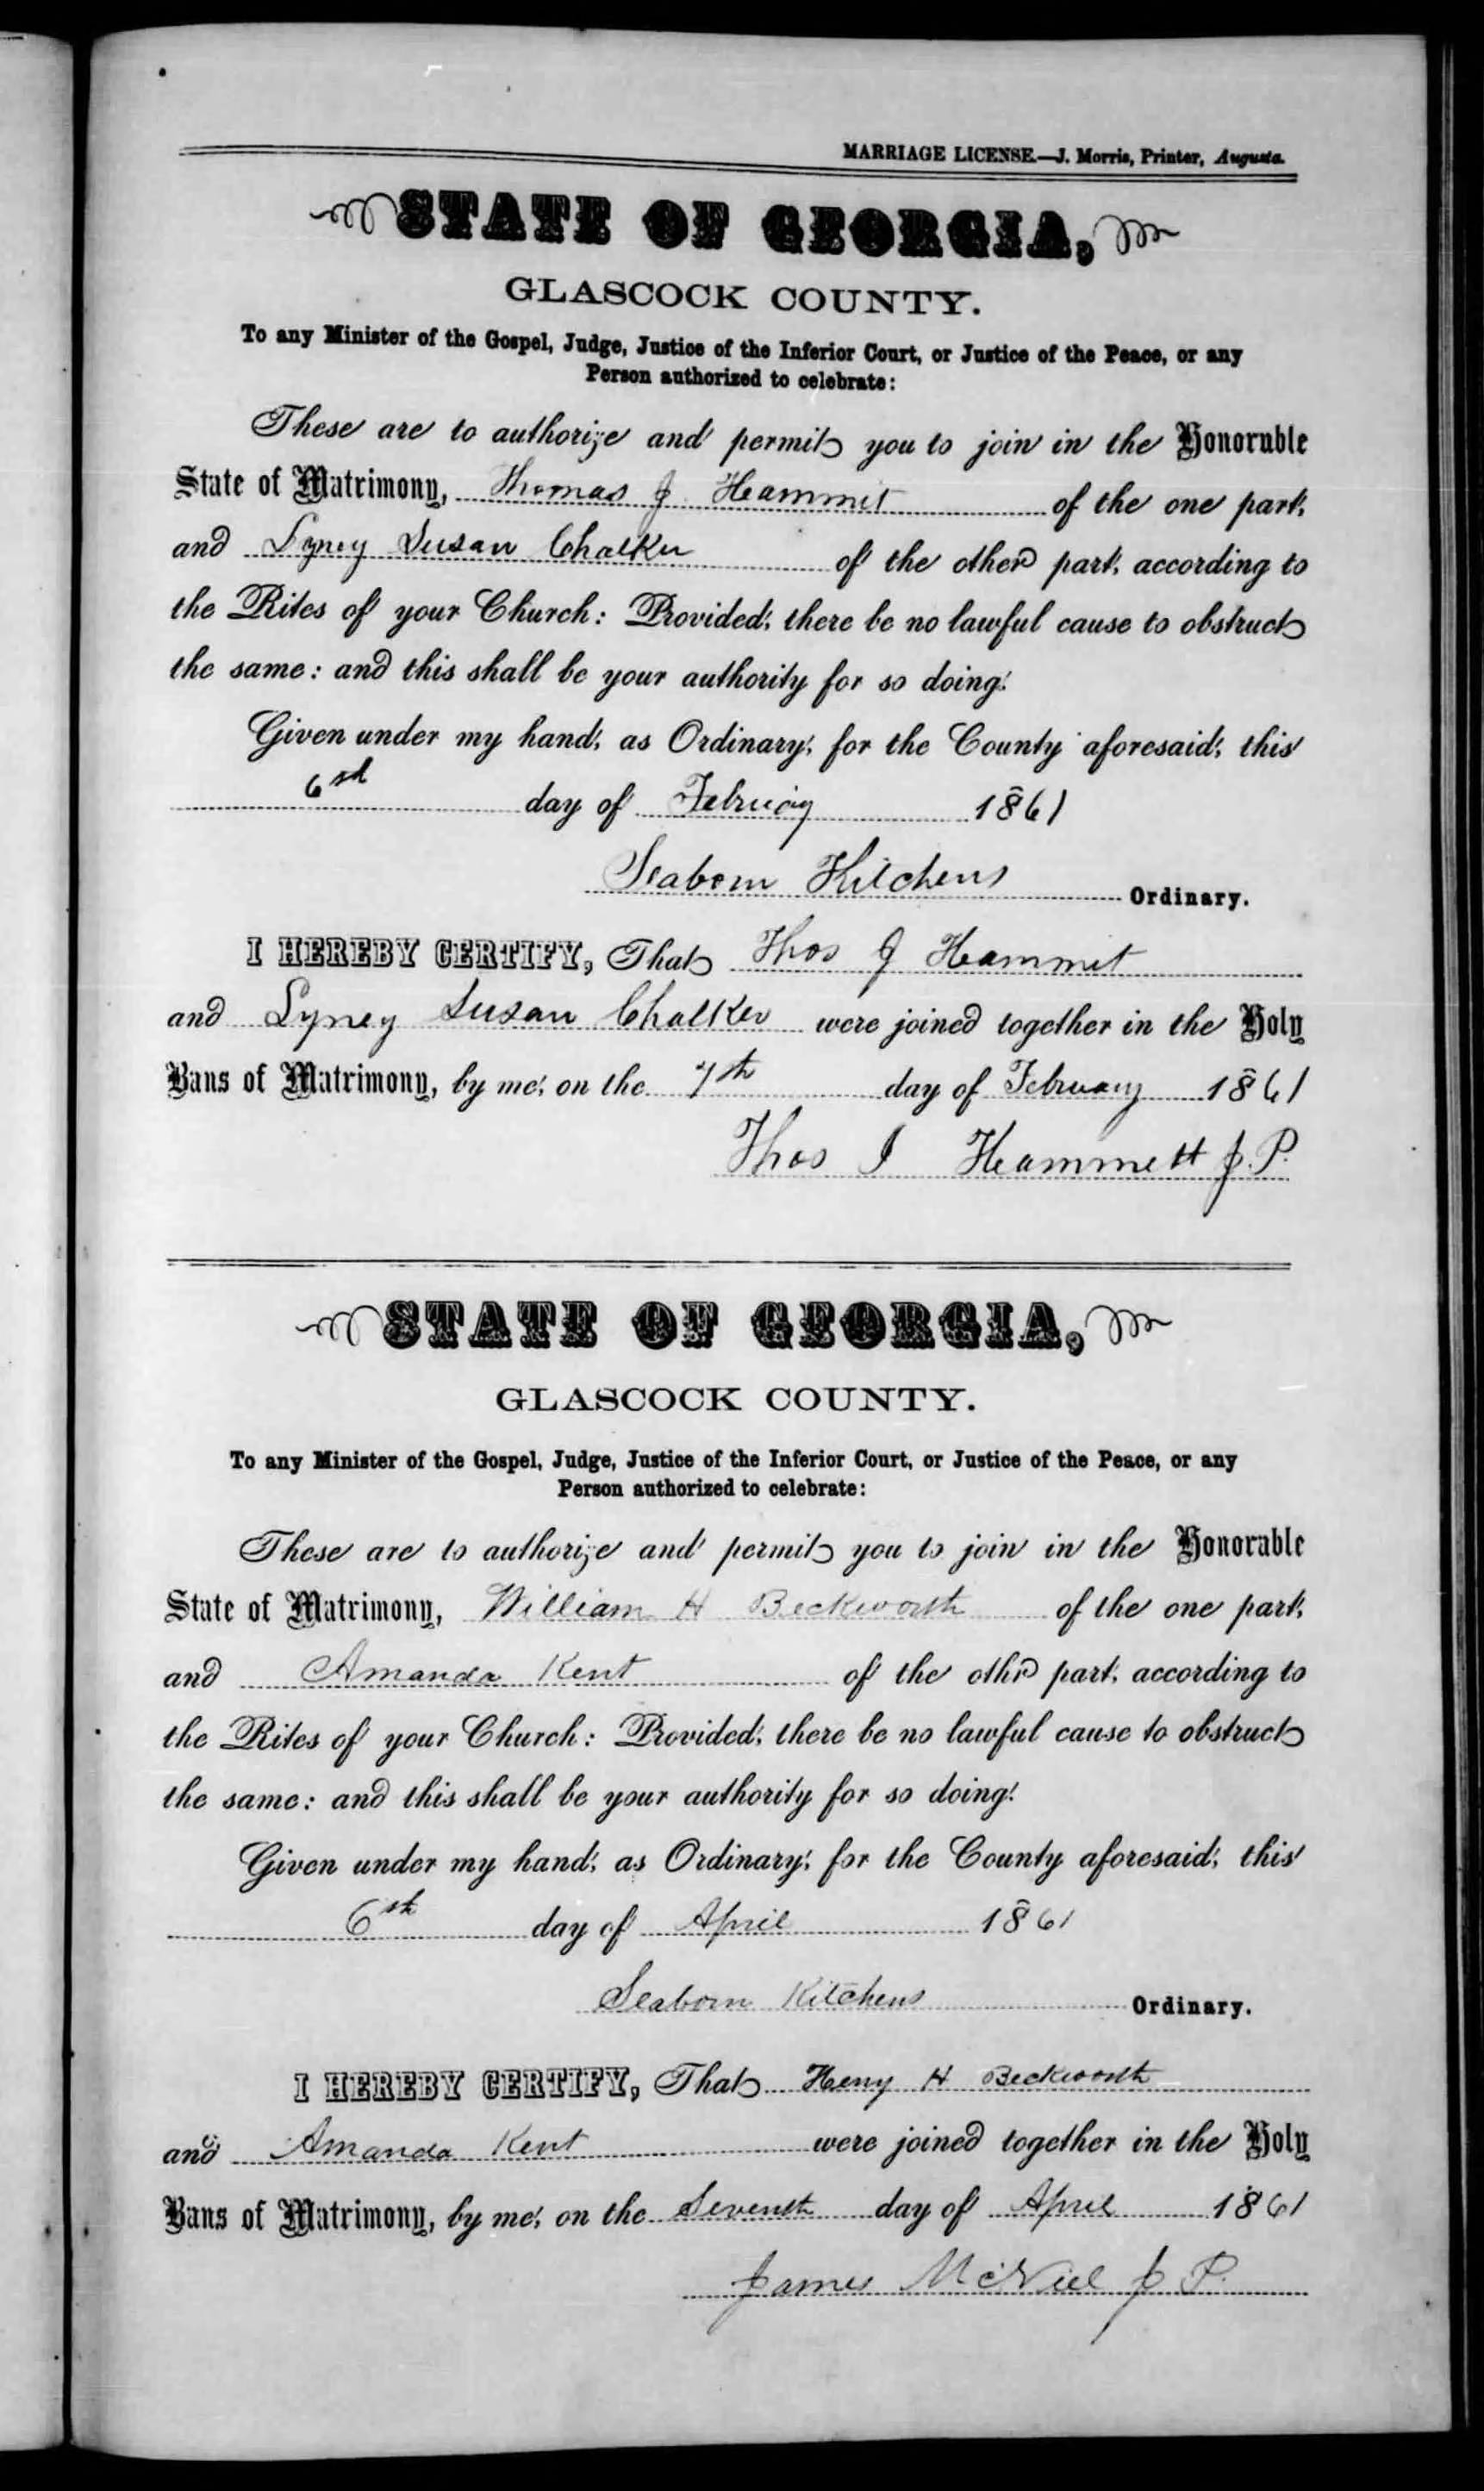 MARRIAGE LICENSE.—J. Morris, Printer, Augusta.
STATE OF GEORGIA,
GLASCOCK COUNTY.
To any Minister of the Gospel, Judge, Justice of the Inferior Court, or Justice of the Peace, or any
Person authorized to celebrate:
These are to authorize and permit you to join in the Honorable
State of Matrimony, Thomas J Hammit of the one part,
and Syney Susan Chalker of the other part, according to
the Rites of your Church: Provided, there be no lawful cause to obstruct
the same: and this shall be your authority for so doing.
Given under my hand, as Ordinary, for the County aforesaid, this
6th day of February 1861
Seaborn Kitchens Ordinary.
I HEREBY CERTIFY, That Thos J Hammit
and Syney Susan Chalker were joined together in the Holy
Bans of Matrimony, by me, on the 7th day of February 1861
Thos J Hammett J.P.
STATE OF GEORGIA,
GLASCOCK COUNTY.
To any Minister of the Gospel, Judge, Justice of the Inferior Court, or Justice of the Peace, or any
Person authorized to celebrate:
These are to authorize and permit you to join in the Honorable
State of Matrimony, William H Beckworth of the one part,
and Amanda Kent of the othr part, according to
the Rites of your Church: Provided, there be no lawful cause to obstruct
the same: and this shall be your authority for so doing.
Given under my hand, as Ordinary, for the County aforesaid, this
6th day of April 1861
Seaborn Kitchens Ordinary.
I HEREBY CERTIFY, That Henry H Beckworth
and Amanda Kent were joined together in the Holy
Bans of Matrimony, by me, on the Seventh day of April 1861
James McNiel J P.